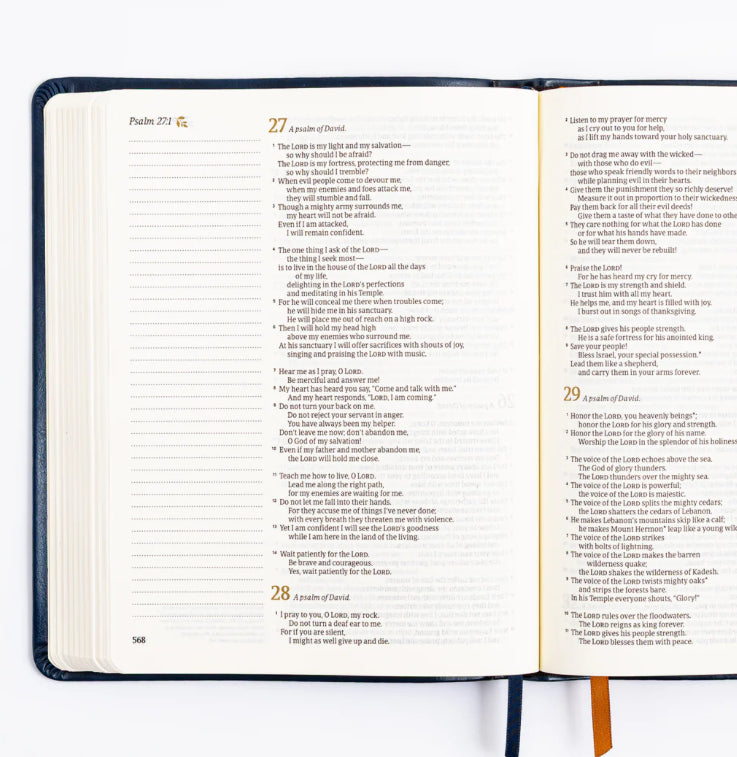 Psalm 27:1
27 A psalm of David.
1 The LORD is my light and my salvation—
so why should I be afraid?
The LORD is my fortress, protecting me from danger,
so why should I tremble?
2 When evil people come to devour me,
when my enemies and foes attack me,
they will stumble and fall.
3 Though a mighty army surrounds me,
my heart will not be afraid.
Even if I am attacked,
I will remain confident.
4 The one thing I ask of the LORD—
the thing I seek most—
is to live in the house of the LORD all the days
of my life,
delighting in the LORD's perfections
and meditating in his Temple.
5 For he will conceal me there when troubles come;
he will hide me in his sanctuary.
He will place me out of reach on a high rock.
6 Then I will hold my head high
above my enemies who surround me.
At his sanctuary I will offer sacrifices with shouts of joy,
singing and praising the LORD with music.
7 Hear me as I pray, O LORD.
Be merciful and answer me!
8 My heart has heard you say, "Come and talk with me."
And my heart responds, "LORD, I am coming."
9 Do not turn your back on me.
Do not reject your servant in anger.
You have always been my helper.
Don't leave me now; don't abandon me,
O God of my salvation!
10 Even if my father and mother abandon me,
the LORD will hold me close.
11 Teach me how to live, O LORD.
Lead me along the right path,
for my enemies are waiting for me.
12 Do not let me fall into their hands.
For they accuse me of things I've never done;
with every breath they threaten me with violence.
13 Yet I am confident I will see the LORD's goodness
while I am here in the land of the living.
14 Wait patiently for the LORD.
Be brave and courageous.
Yes, wait patiently for the LORD.
28 A psalm of David.
1 I pray to you, O LORD, my rock.
Do not turn a deaf ear to me.
For if you are silent,
I might as well give up and die.
568
2 Listen to my prayer for mercy
as I cry out to you for help,
as I lift my hands toward your holy sanctuary.
3 Do not drag me away with the wicked—
with those who do evil—
those who speak friendly words to their neighbors
while planning evil in their hearts.
4 Give them the punishment they so richly deserve!
Measure it out in proportion to their wickedness
Pay them back for all their evil deeds!
Give them a taste of what they have done to othe
5 They care nothing for what the LORD has done
or for what his hands have made.
So he will tear them down,
and they will never be rebuilt!
6 Praise the LORD!
For he has heard my cry for mercy.
7 The LORD is my strength and shield.
I trust him with all my heart.
He helps me, and my heart is filled with joy.
I burst out in songs of thanksgiving.
8 The LORD gives his people strength.
He is a safe fortress for his anointed king.
9 Save your people!
Bless Israel, your special possession.*
Lead them like a shepherd,
and carry them in your arms forever.
29 A psalm of David.
1 Honor the LORD, you heavenly beings*;
honor the LORD for his glory and strength.
2 Honor the LORD for the glory of his name.
Worship the LORD in the splendor of his holiness
3 The voice of the LORD echoes above the sea.
The God of glory thunders.
The LORD thunders over the mighty sea.
4 The voice of the LORD is powerful;
the voice of the LORD is majestic.
5 The voice of the LORD splits the mighty cedars;
the LORD shatters the cedars of Lebanon.
6 He makes Lebanon's mountains skip like a calf;
he makes Mount Hermon* leap like a young wild
7 The voice of the LORD strikes
with bolts of lightning.
8 The voice of the LORD makes the barren
wilderness quake;
the LORD shakes the wilderness of Kadesh.
9 The voice of the LORD twists mighty oaks*
and strips the forests bare.
In his Temple everyone shouts, "Glory!"
10 The LORD rules over the floodwaters.
The LORD reigns as king forever.
11 The LORD gives his people strength.
The LORD blesses them with peace.